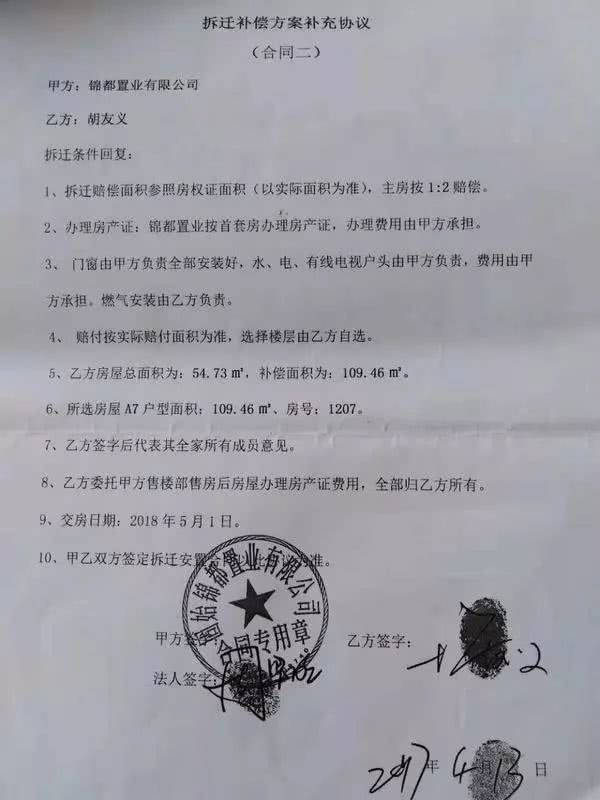 拆迁补偿方案补充协议
（合同二）
甲方：锦都置业有限公司
乙方：胡友义
拆迁条件回复：
1、拆迁赔偿面积参照房权证面积（以实际面积为准），主房按1:2赔偿。
2、办理房产证：锦都置业按首套房办理房产证，办理费用由甲方承担。
3、 门窗由甲方负责全部安装好，水、电、有线电视户头由甲方负责，费用由甲
方承担。燃气安装由乙方负责。
4、 赔付按实际赔付面积为准，选择楼层由乙方自选。
5、乙方房屋总面积为：54.73㎡，补偿面积为：109.46㎡。
6、所选房屋A7户型面积：109.46㎡、房号：1207。
7、乙方签字后代表其全家所有成员意见。
8、乙方委托甲方售楼部售房后房屋办理房产证费用，全部归乙方所有。
9、交房日期：2018年5月1日。
10、甲乙双方签定拆迁安置以此协议为准。
固始锦都置业有限公司
合同专用章
甲方签字： 乙方签字：
法人签字：
2017年4月13日